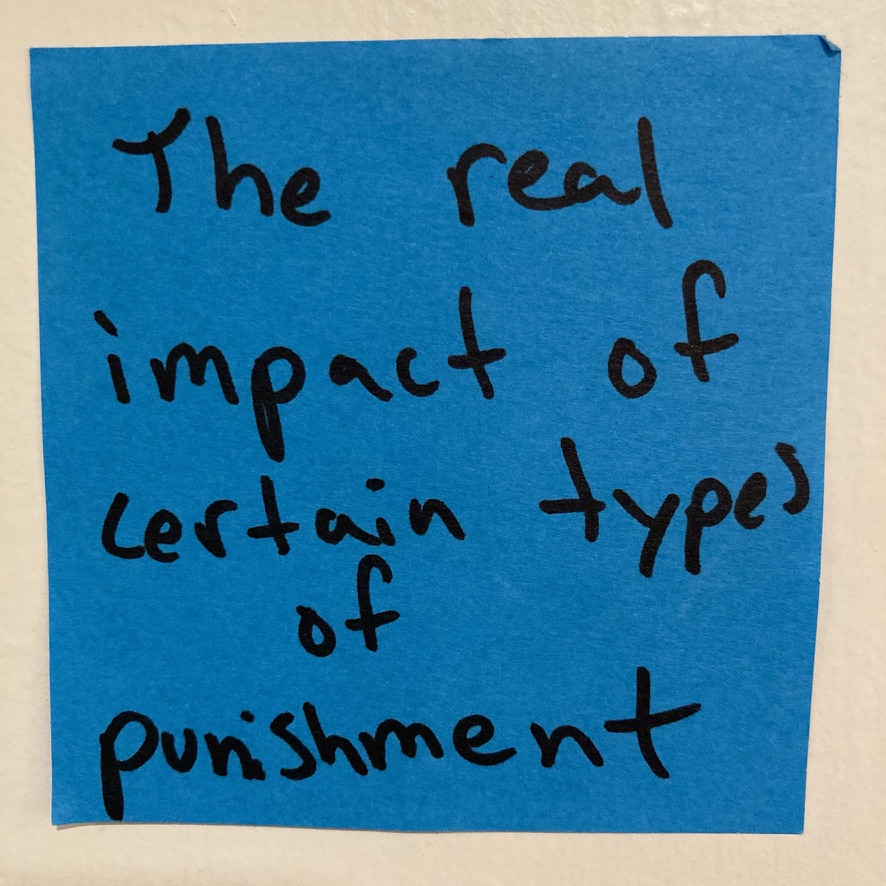 The real
impact of
certain types
of
punishment